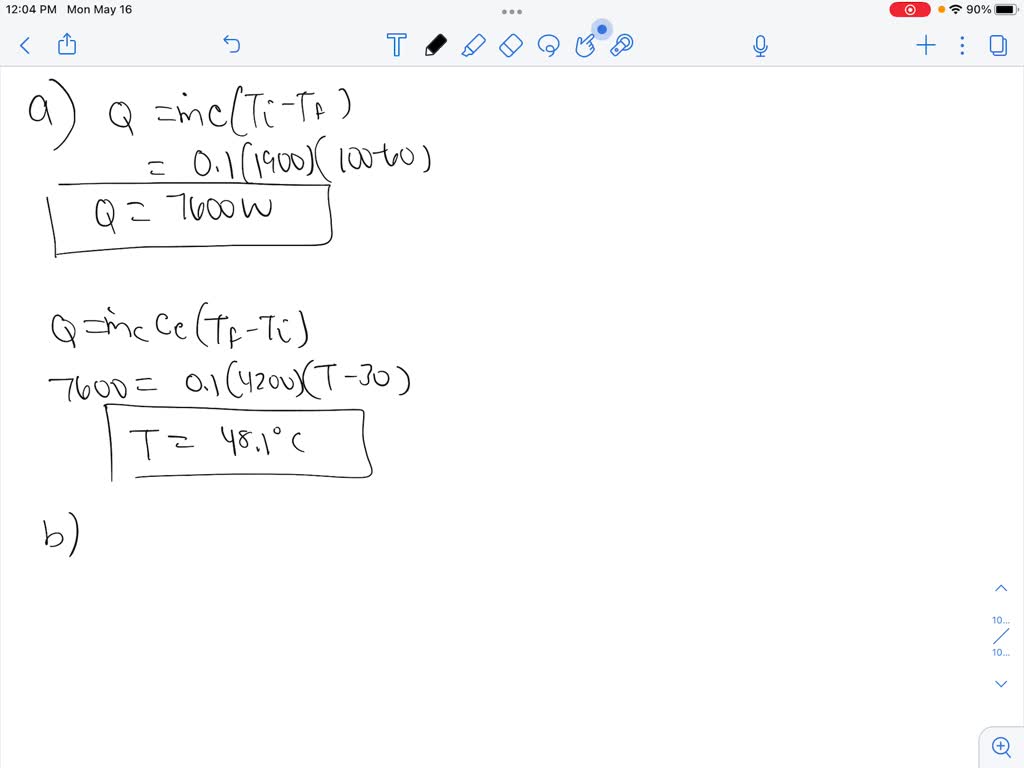 12:04 PM Mon May 16
90%
T
a) Q = ṁc(Ti-Tf)
= 0.1(1900)(100-60)
Q = 7600W
Q = ṁc Cc (Tf-Ti)
7600 = 0.1(4200)(T-30)
T = 48.1°C
b)
10...
10...